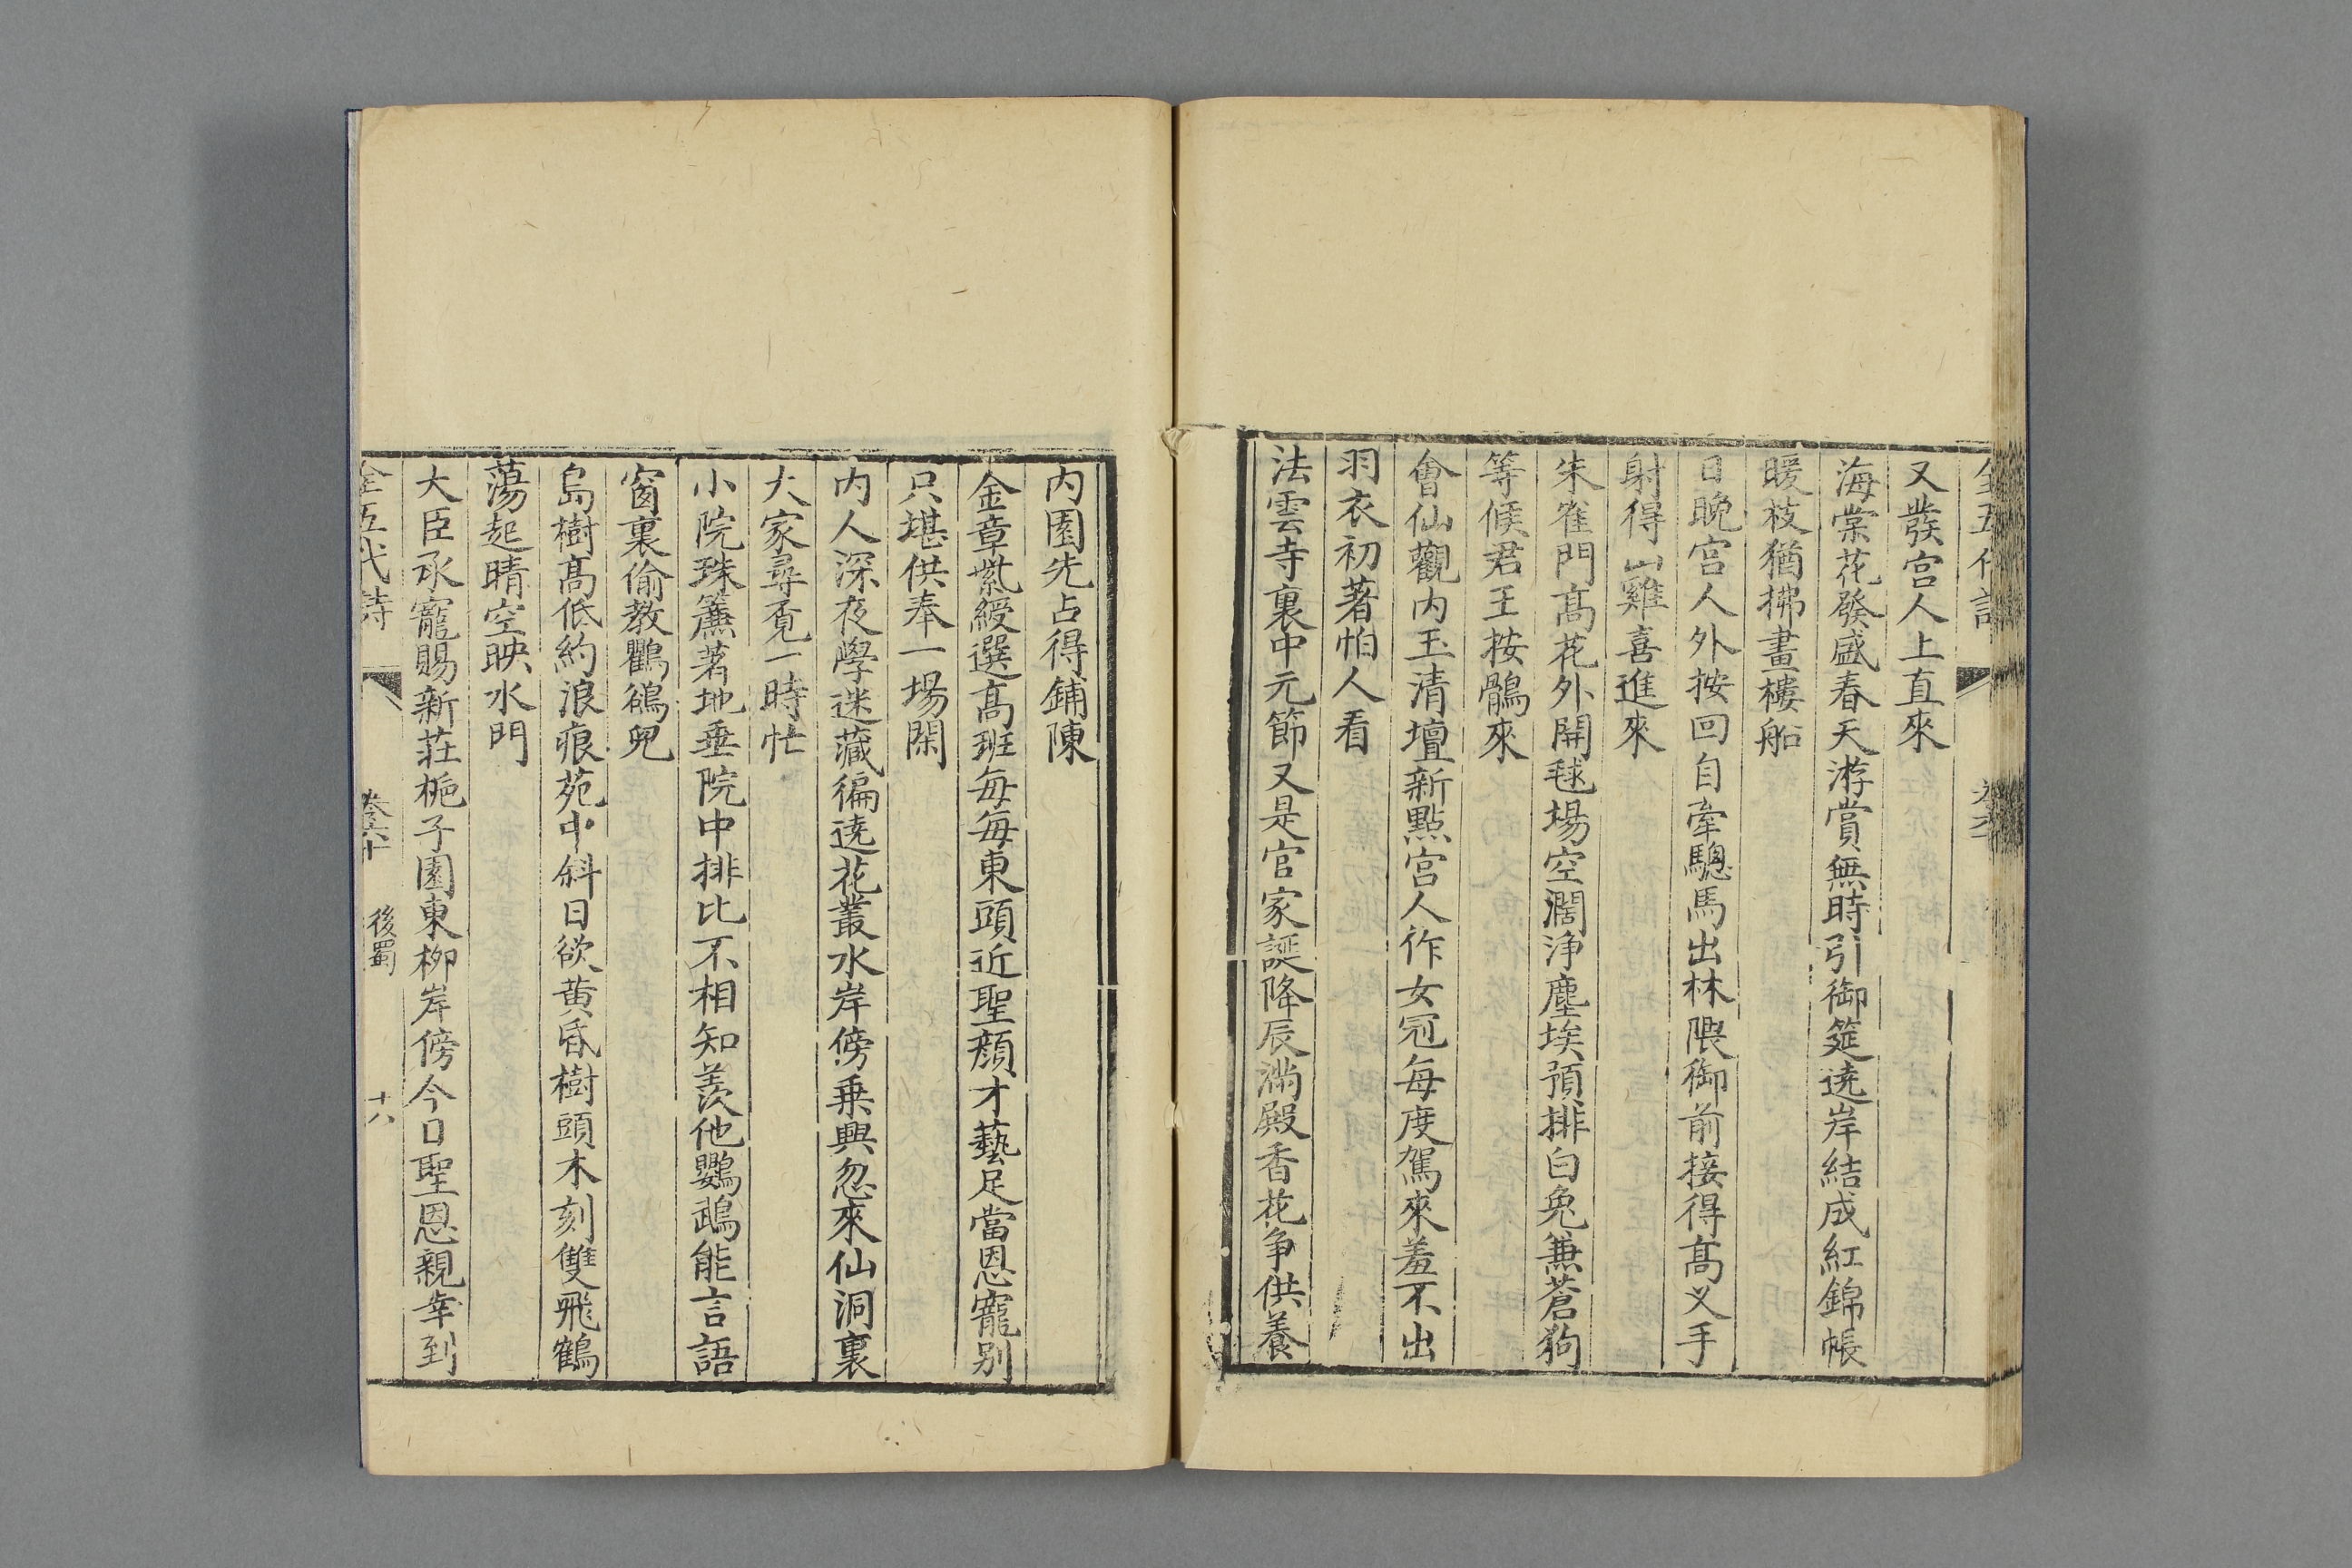 全五代詩
又發宫人上直來
海棠花發盛春天游賞無時引御筵遶岸結成紅錦帳
暖枝猶拂畫樓船
日晚宫人外按回自牽驄馬出林隈御前接得高叉手
射得山雞喜進來
朱雀門高花外開毬場空濶淨塵埃預排白兔兼蒼狗
等候君王按鶻來
會仙觀内玉清壇新點宫人作女冠每度駕來羞不出
羽衣初著怕人看
法雲寺裏中元節又是官家誕降辰滿殿香花争供養
内園先占得鋪陳
金章紫綬選高班每每東頭近聖顔才藝足當恩寵别
只堪供奉一場閑
内人深夜學迷藏徧遶花叢水岸傍乗興忽來仙洞裏
大家尋覓一時忙
小院珠簾著地垂院中排比不相知羨他鸚鵡能言語
窗裏偷教鸜鵒兒
島樹高低約浪痕苑中斜日欲黄昏樹頭木刻雙飛鶴
蕩起晴空映水門
大臣承寵賜新莊梔子園東柳岸傍今日聖恩親幸到
全五代詩 卷六十 後蜀 十八